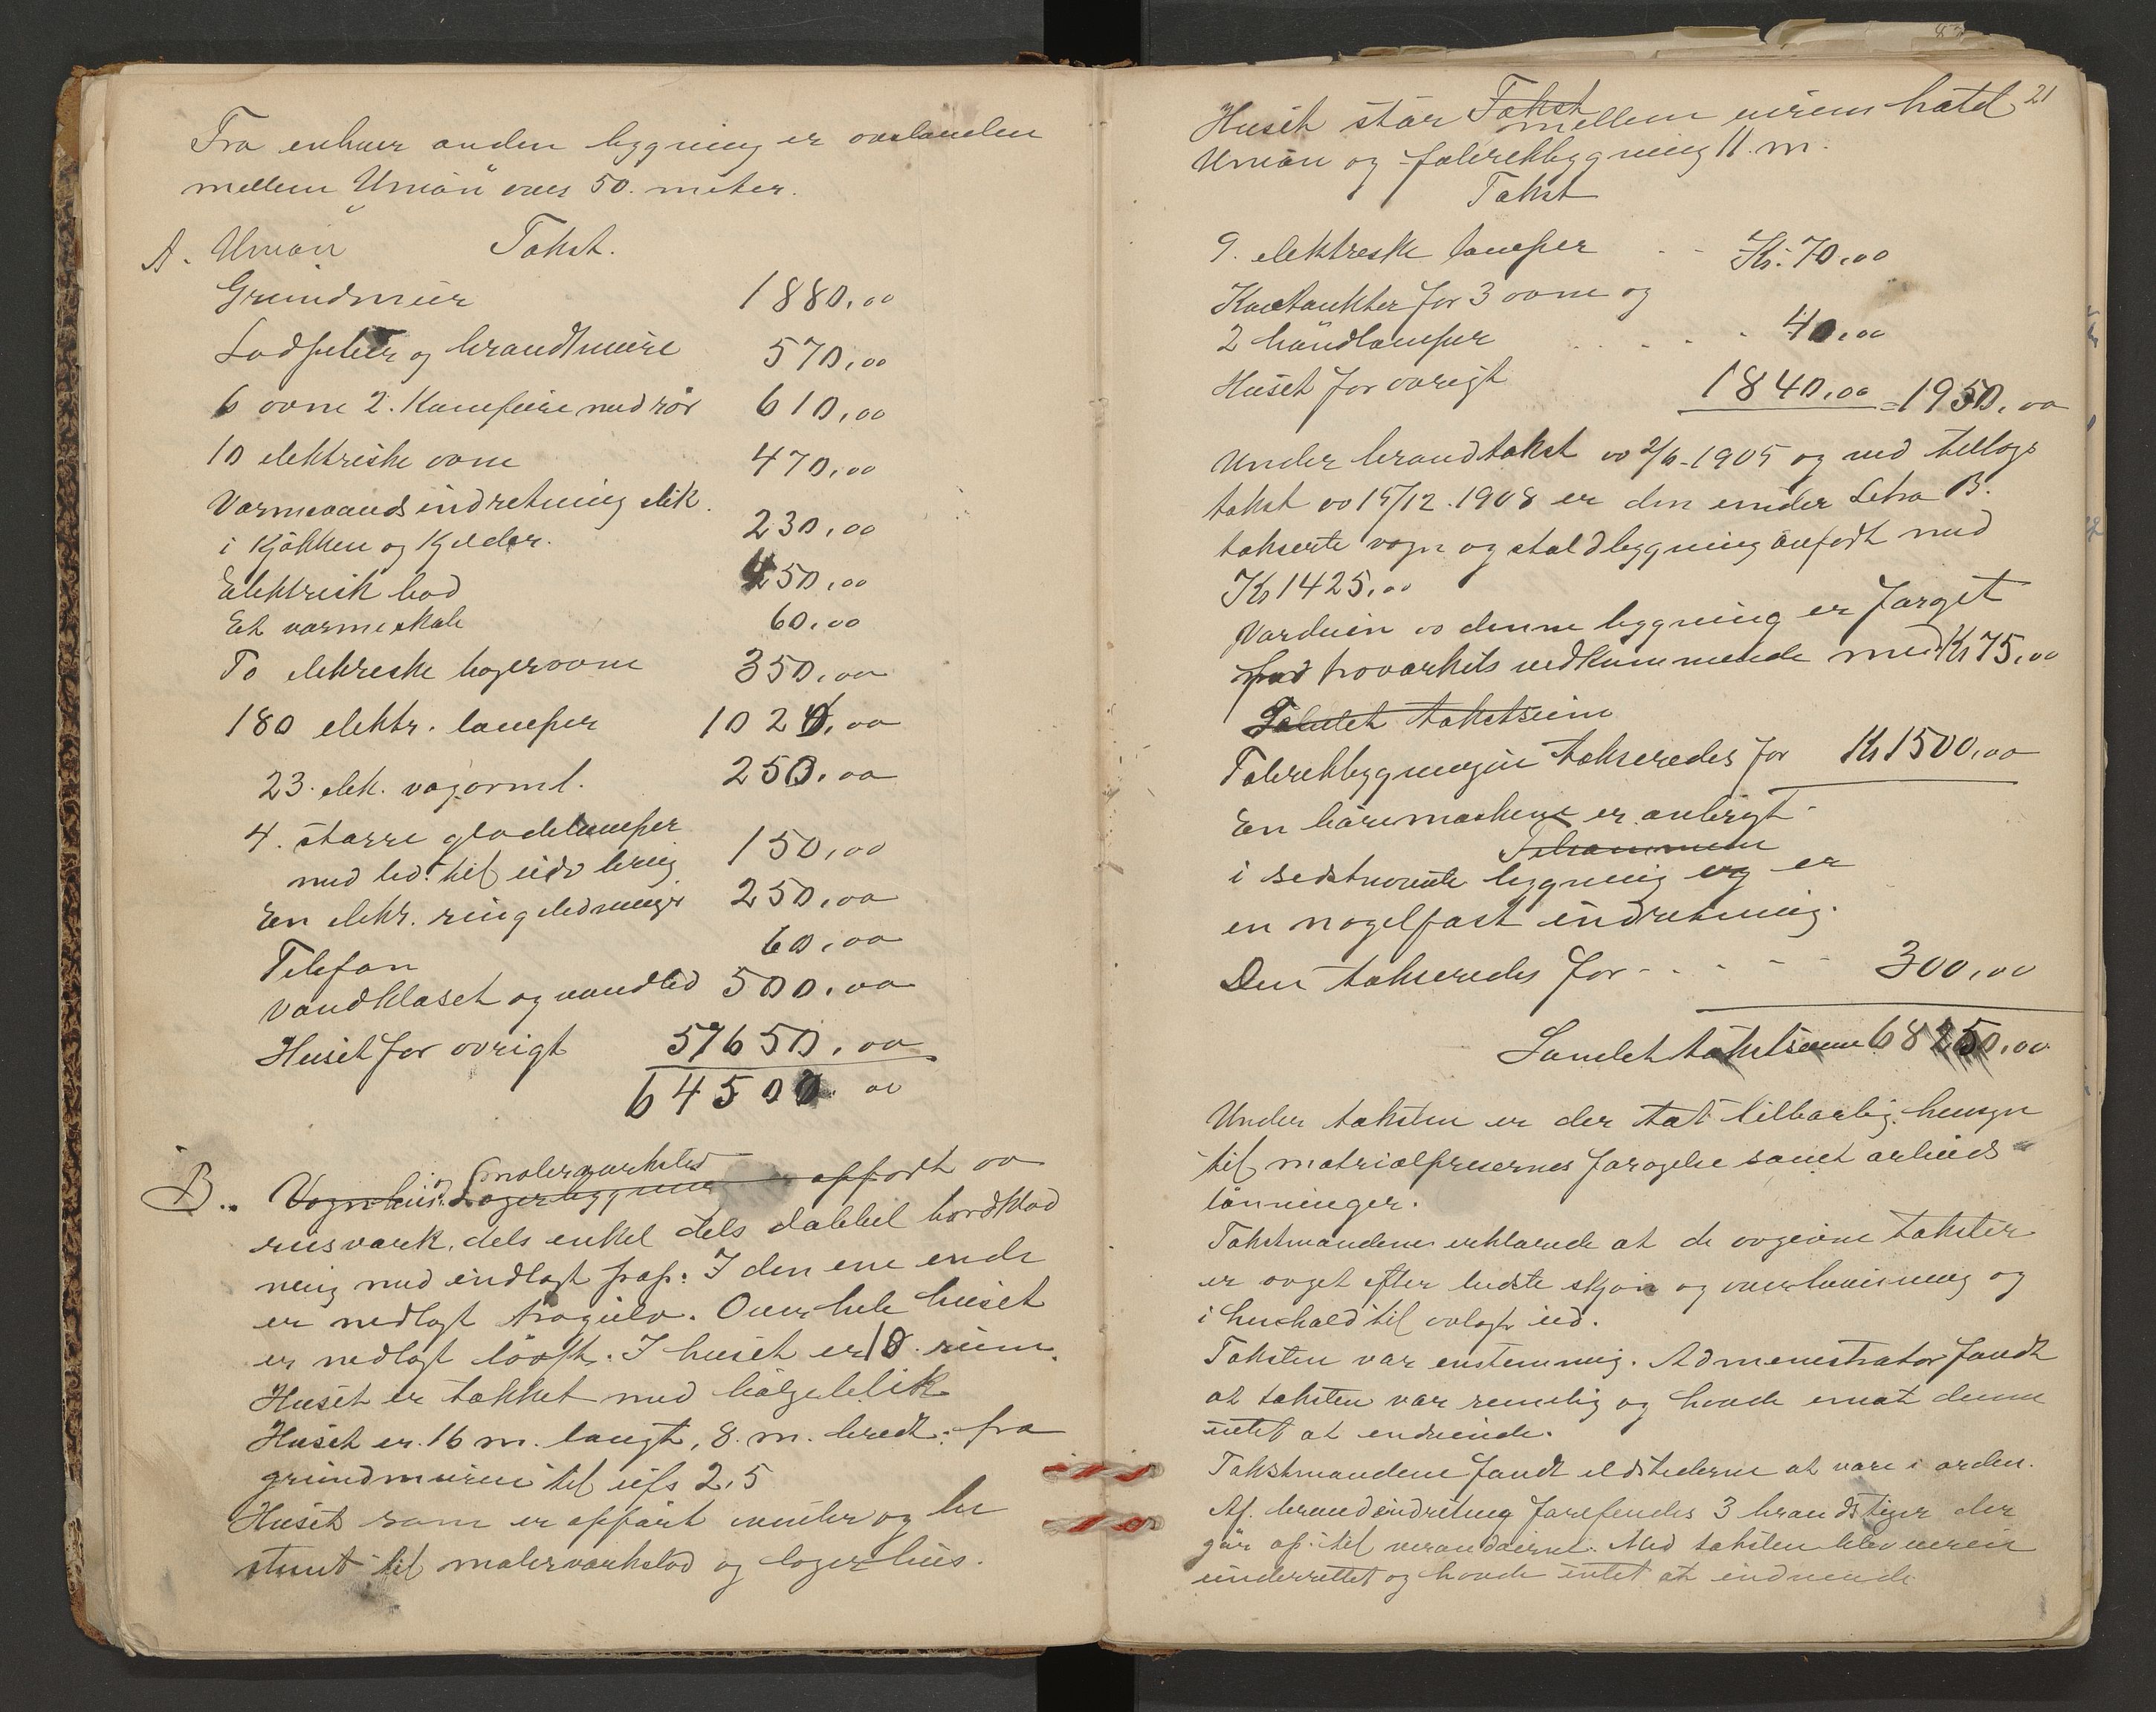 Fra enhver anden bygning er avstanden
mellem Union over 50. meter.
A. Union Takst.
Grundmur 1880,00
Lodpiber og brandmure 570,00
6 ovne 2. Kamfiner med rör 610,00
10 elektriske ovne 470,00
Varmvands indretning elek.
i Kjökken og Kjelder. 230,00
Elektrisk bad 450,00
Et varmeskab 60,00
To elekreske bagerovne 350,00
180 elektr. lamper 1020,00
23. elek. 250,00
4. större glödelamper
med led. til utv bring 150,00
En elekr. ringeledninge 250,00
Telefon 60,00
Vandkloset og vandled 500,00
Huset for övrigt 57650,00
64500.00
malerverksted
B.. Vognhus. Lagerbygning opfört av
reisverk, dels enkel dels dobbel bordklæd
ning med indlagt pap. I den ene ende
er nedlagt tregulv. Over hele huset
er nedlagt löoft. I huset er 10. rum.
Huset er tækket med bölgeblik
Huset er 16 m. langt, 8. m. bredt. fra
grundmuren til ufs 2,5
Huset som er oppört under og be
stemt til malerverksted og lagerhus.
21
Takst
Huset står mellem eiren hotel
Union og fabrekbygning 11. m.
Takst
9. elektreske lamper - - Kr. 70,00
Kontankter for 3 ovne og
2 håndlamper . . . . . 40,00
Huset for övrigt 1840,00 = 1950,00
Under brandtakst av 2/6-1905 og ved tillægs
takst av 15/12.1908 er den under Letra B.
takserte vogn og staldbygning anfört med
Kr 1425,00
Værdien av denne bygning er forøget
malerverkets vedkommende med Kr 75,00
Samlet takstsum
Fabrekbygningen takseredes for Kr 1500,00
En boremaskene er anbragt
i sedstnævnte bygning og er
en nagelfast indretning.
Den takseredes for - - - - - 300,00
Samlet takstsum 68250,00
Under taksten er der tat tilbørlig hensyn
til matrialpresernes forøgelse samt arbeids
lönninger.
Takstmændene erklærede at de avgivne takster
er avget efter bedste skjøn og overbevisning og
i henhold til avlagt ed.
Taksten var enstemmig. Admenestrator fandt
at taksten var remelig og havde emot denne
intet at endvende.
Takstmændene fandt ildstederne at være i orden.
Af. brandindretneg forefendes 3 brandstiger der
går op til verandaerne. Med taksten blev eieren
underrettet og havde intet at indvende